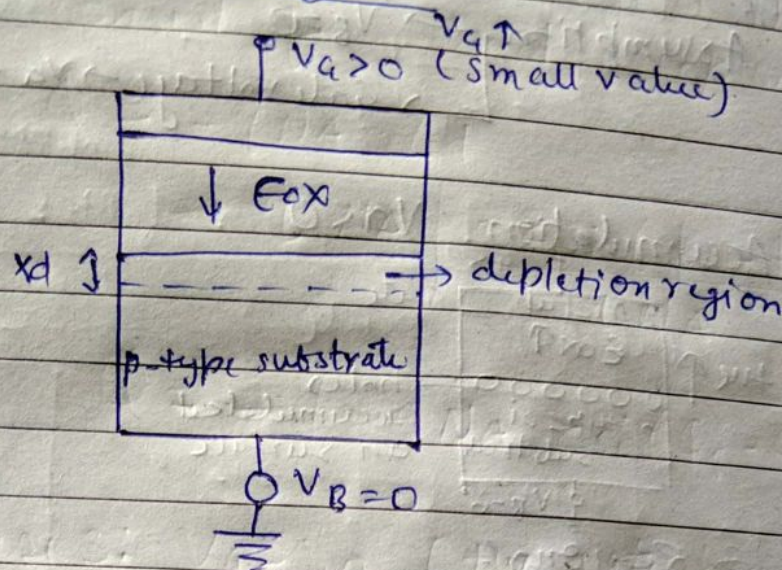 VG↑
VG>0 (small value)
↓ Eox
xd ↕ → depletion region
p-type substrate
VB=0